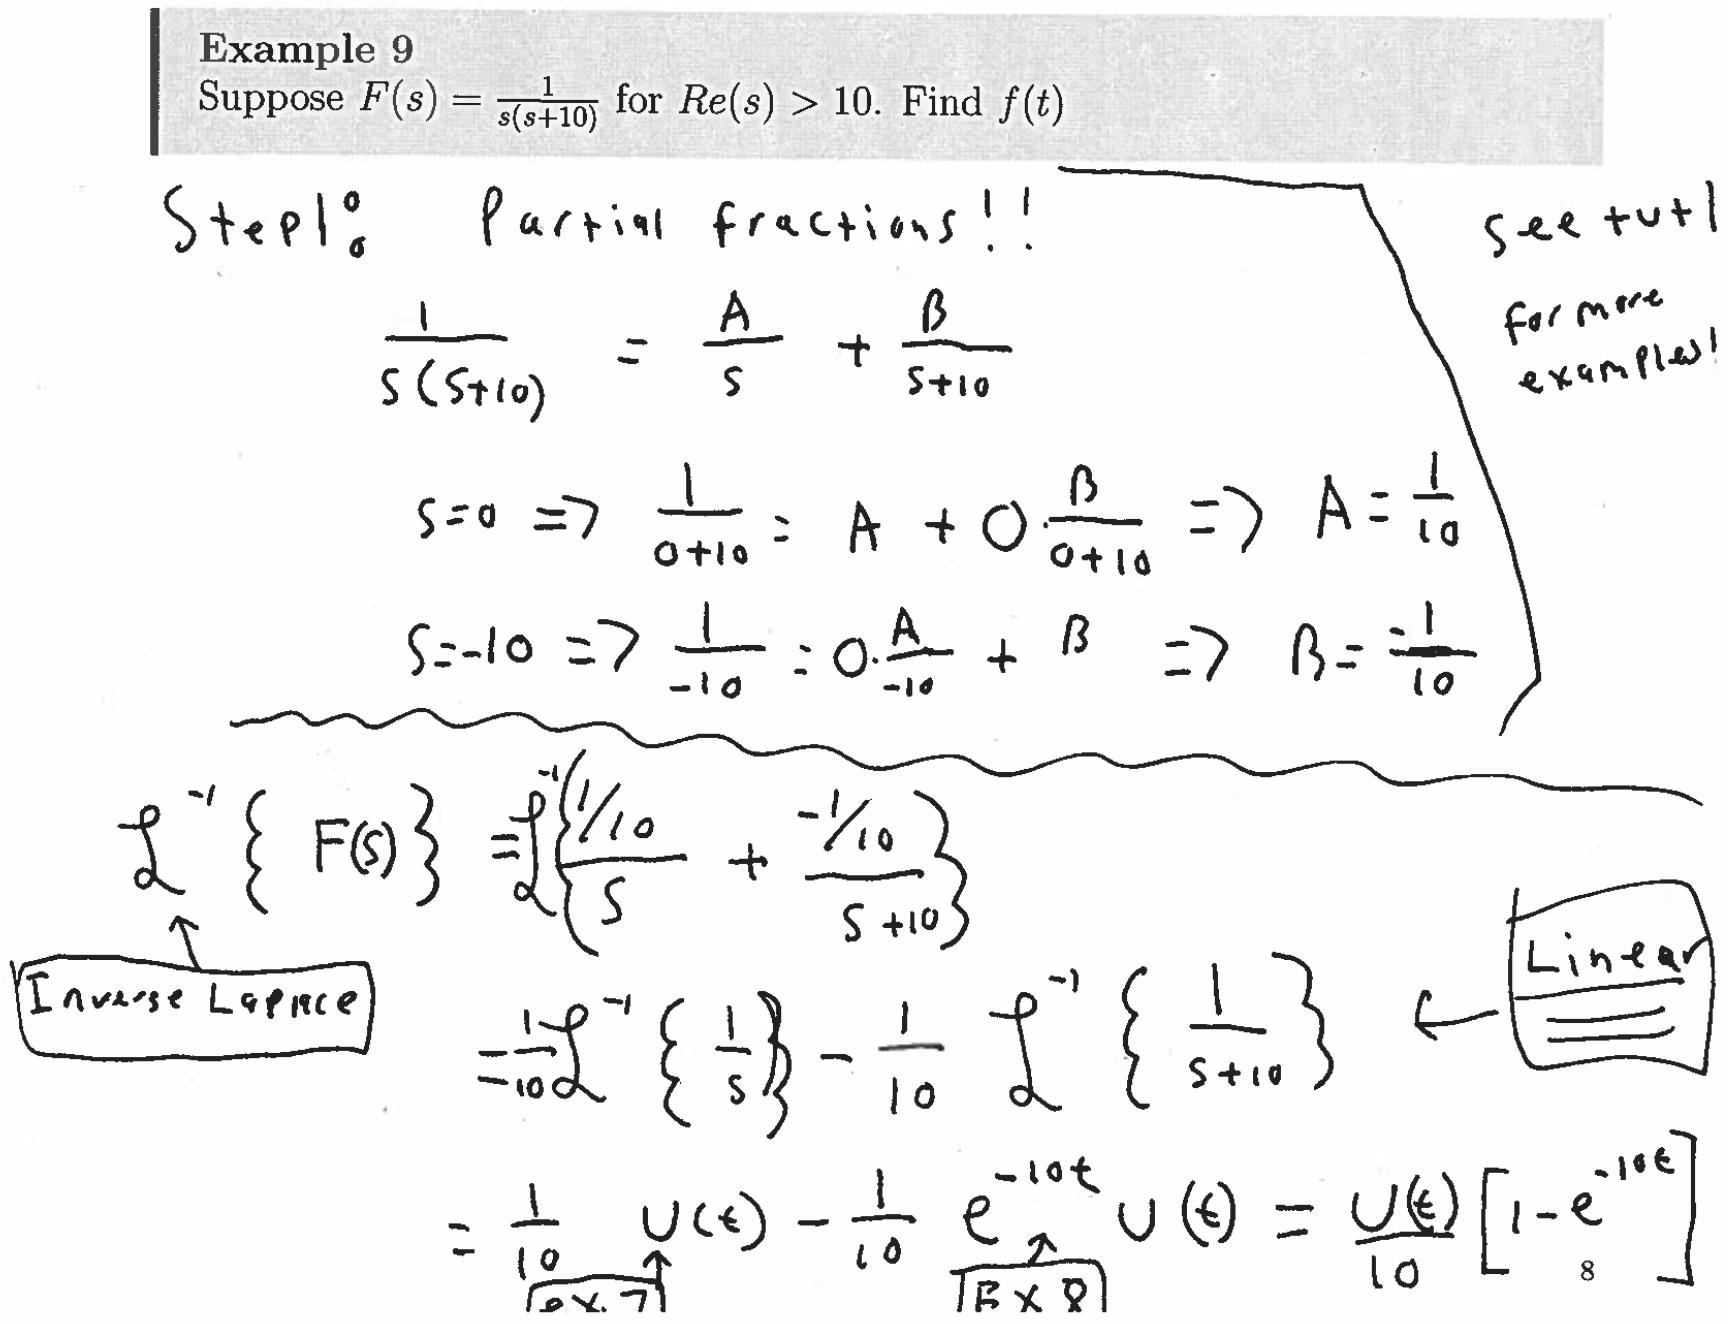 Example 9
Suppose F(s) = 1/(s(s+10)) for Re(s) > 10. Find f(t)
Step1: Partial fractions!!
see tut1
for more
examples!
1/(s(s+10)) = A/s + B/(s+10)
s=0 => 1/(0+10) = A + 0·B/(0+10) => A = 1/10
s=-10 => 1/-10 = 0·A/-10 + B => B = -1/10
ℒ^-1 { F(s) } = ℒ^-1 { (1/10)/s + (-1/10)/(s+10) }
Inverse Laplace
Linear
= 1/10 ℒ^-1 { 1/s } - 1/10 ℒ^-1 { 1/(s+10) }
= 1/10 U(t) - 1/10 e^-10t U(t) = U(t)/10 [1 - e^-10t]
ex. 7
Ex 8
8